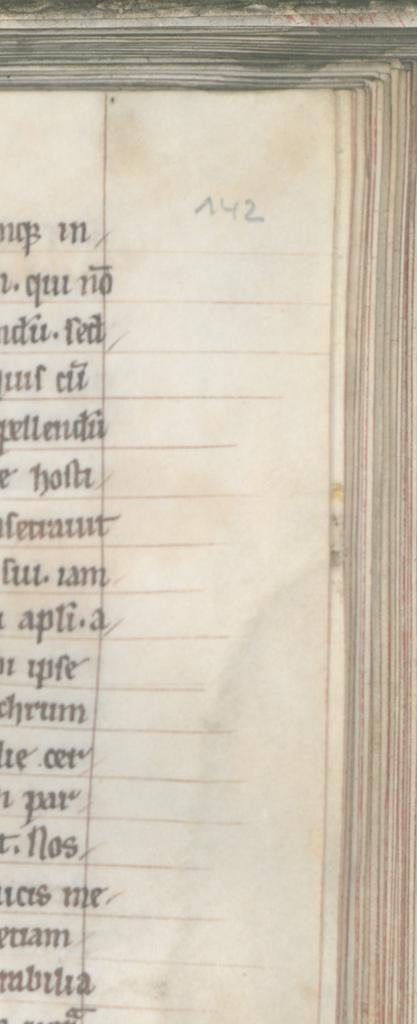 142
in
n. qui nō
ndū. sed
uis cū
pellendū
e hosti
sui. iam
apli. a
ipse
chrum
lię cer
n par
t. Nos
ucis me
etiam
rabilia